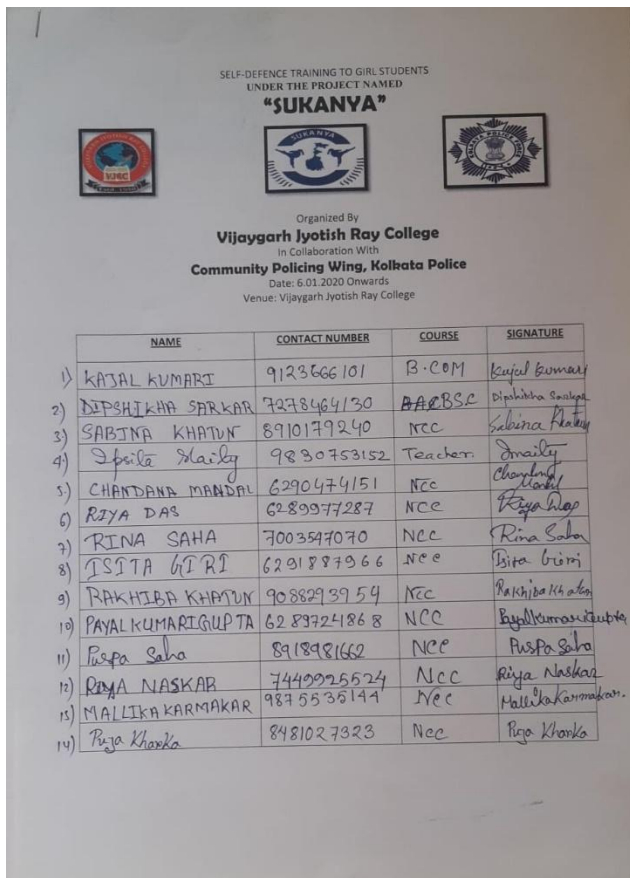 SELF-DEFENCE TRAINING TO GIRL STUDENTS
UNDER THE PROJECT NAMED
"SUKANYA"
VJRC
SUKANYA
Organized By
Vijaygarh Jyotish Ray College
In Collaboration With
Community Policing Wing, Kolkata Police
Date: 6.01.2020 Onwards
Venue: Vijaygarh Jyotish Ray College
NAME CONTACT NUMBER COURSE SIGNATURE
1) KAJAL KUMARI 9123666101 B.COM Kajal Kumari
2) DIPSHIKHA SARKAR 7278464130 BSC Dipshikha Sarkar
3) SABINA KHATUN 8910179240 NCC Sabina Khatun
4) Ipsita Maity 9830753152 Teacher. Imaity
5.) CHANDANA MANDAL 6290474151 NCC Chandana Mandal
6) RIYA DAS 6289977287 NCC Riya Das
7) RINA SAHA 7003547070 NCC Rina Saha
8) ISITA GIRI 6291887966 NCC Isita Giri
9) RAKHIBA KHATUN 9088293954 NCC Rakhiba Khatun
10) PAYAL KUMARI GUPTA 6289724868 NCC Payal kumari Gupta
11) Puspa Saha 8918981662 NCC Puspa Saha
12) RIYA NASKAR 7449925524 NCC Riya Naskar
13) MALLIKA KARMAKAR 9875535144 NCC Mallika Karmakar.
14) Puja Khanka 8481027323 NCC Puja Khanka